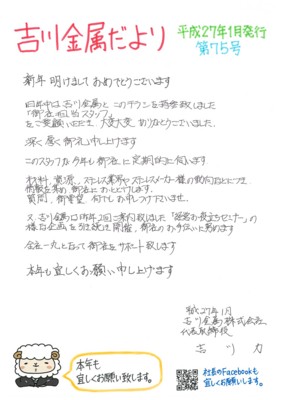 吉川金属だより
平成27年1月発行
第75号
新年 明けまして おめでとうございます
昨年中は 吉川金属と このチラシを持参致しました
「御社担当スタッフ」
をご愛顧いただき、大変大変 ありがとうございました。
深く 厚く 御礼 申し上げます
このスタッフが 今年も 御社に 定期的に伺います
材料、ステンレス業界、ステンレスメーカー様の動向などにつき
情報を集め 御社に おとどけします。
質問、御要望 何でも お申しつけ下さいませ。
又、吉川金属は昨年2回ご案内致しました「経営お役立ちセミナー」の
様な企画を引き続き開催、御社の お手伝いに努めます
全社一丸となって 御社を サポート致します
本年も 宜しくお願い 申し上げます
平成27年1月
吉川金属株式会社
代表取締役
吉川 力
本年も
宜しくお願い致します。
社長のFacebookも
宜しくお願いします。